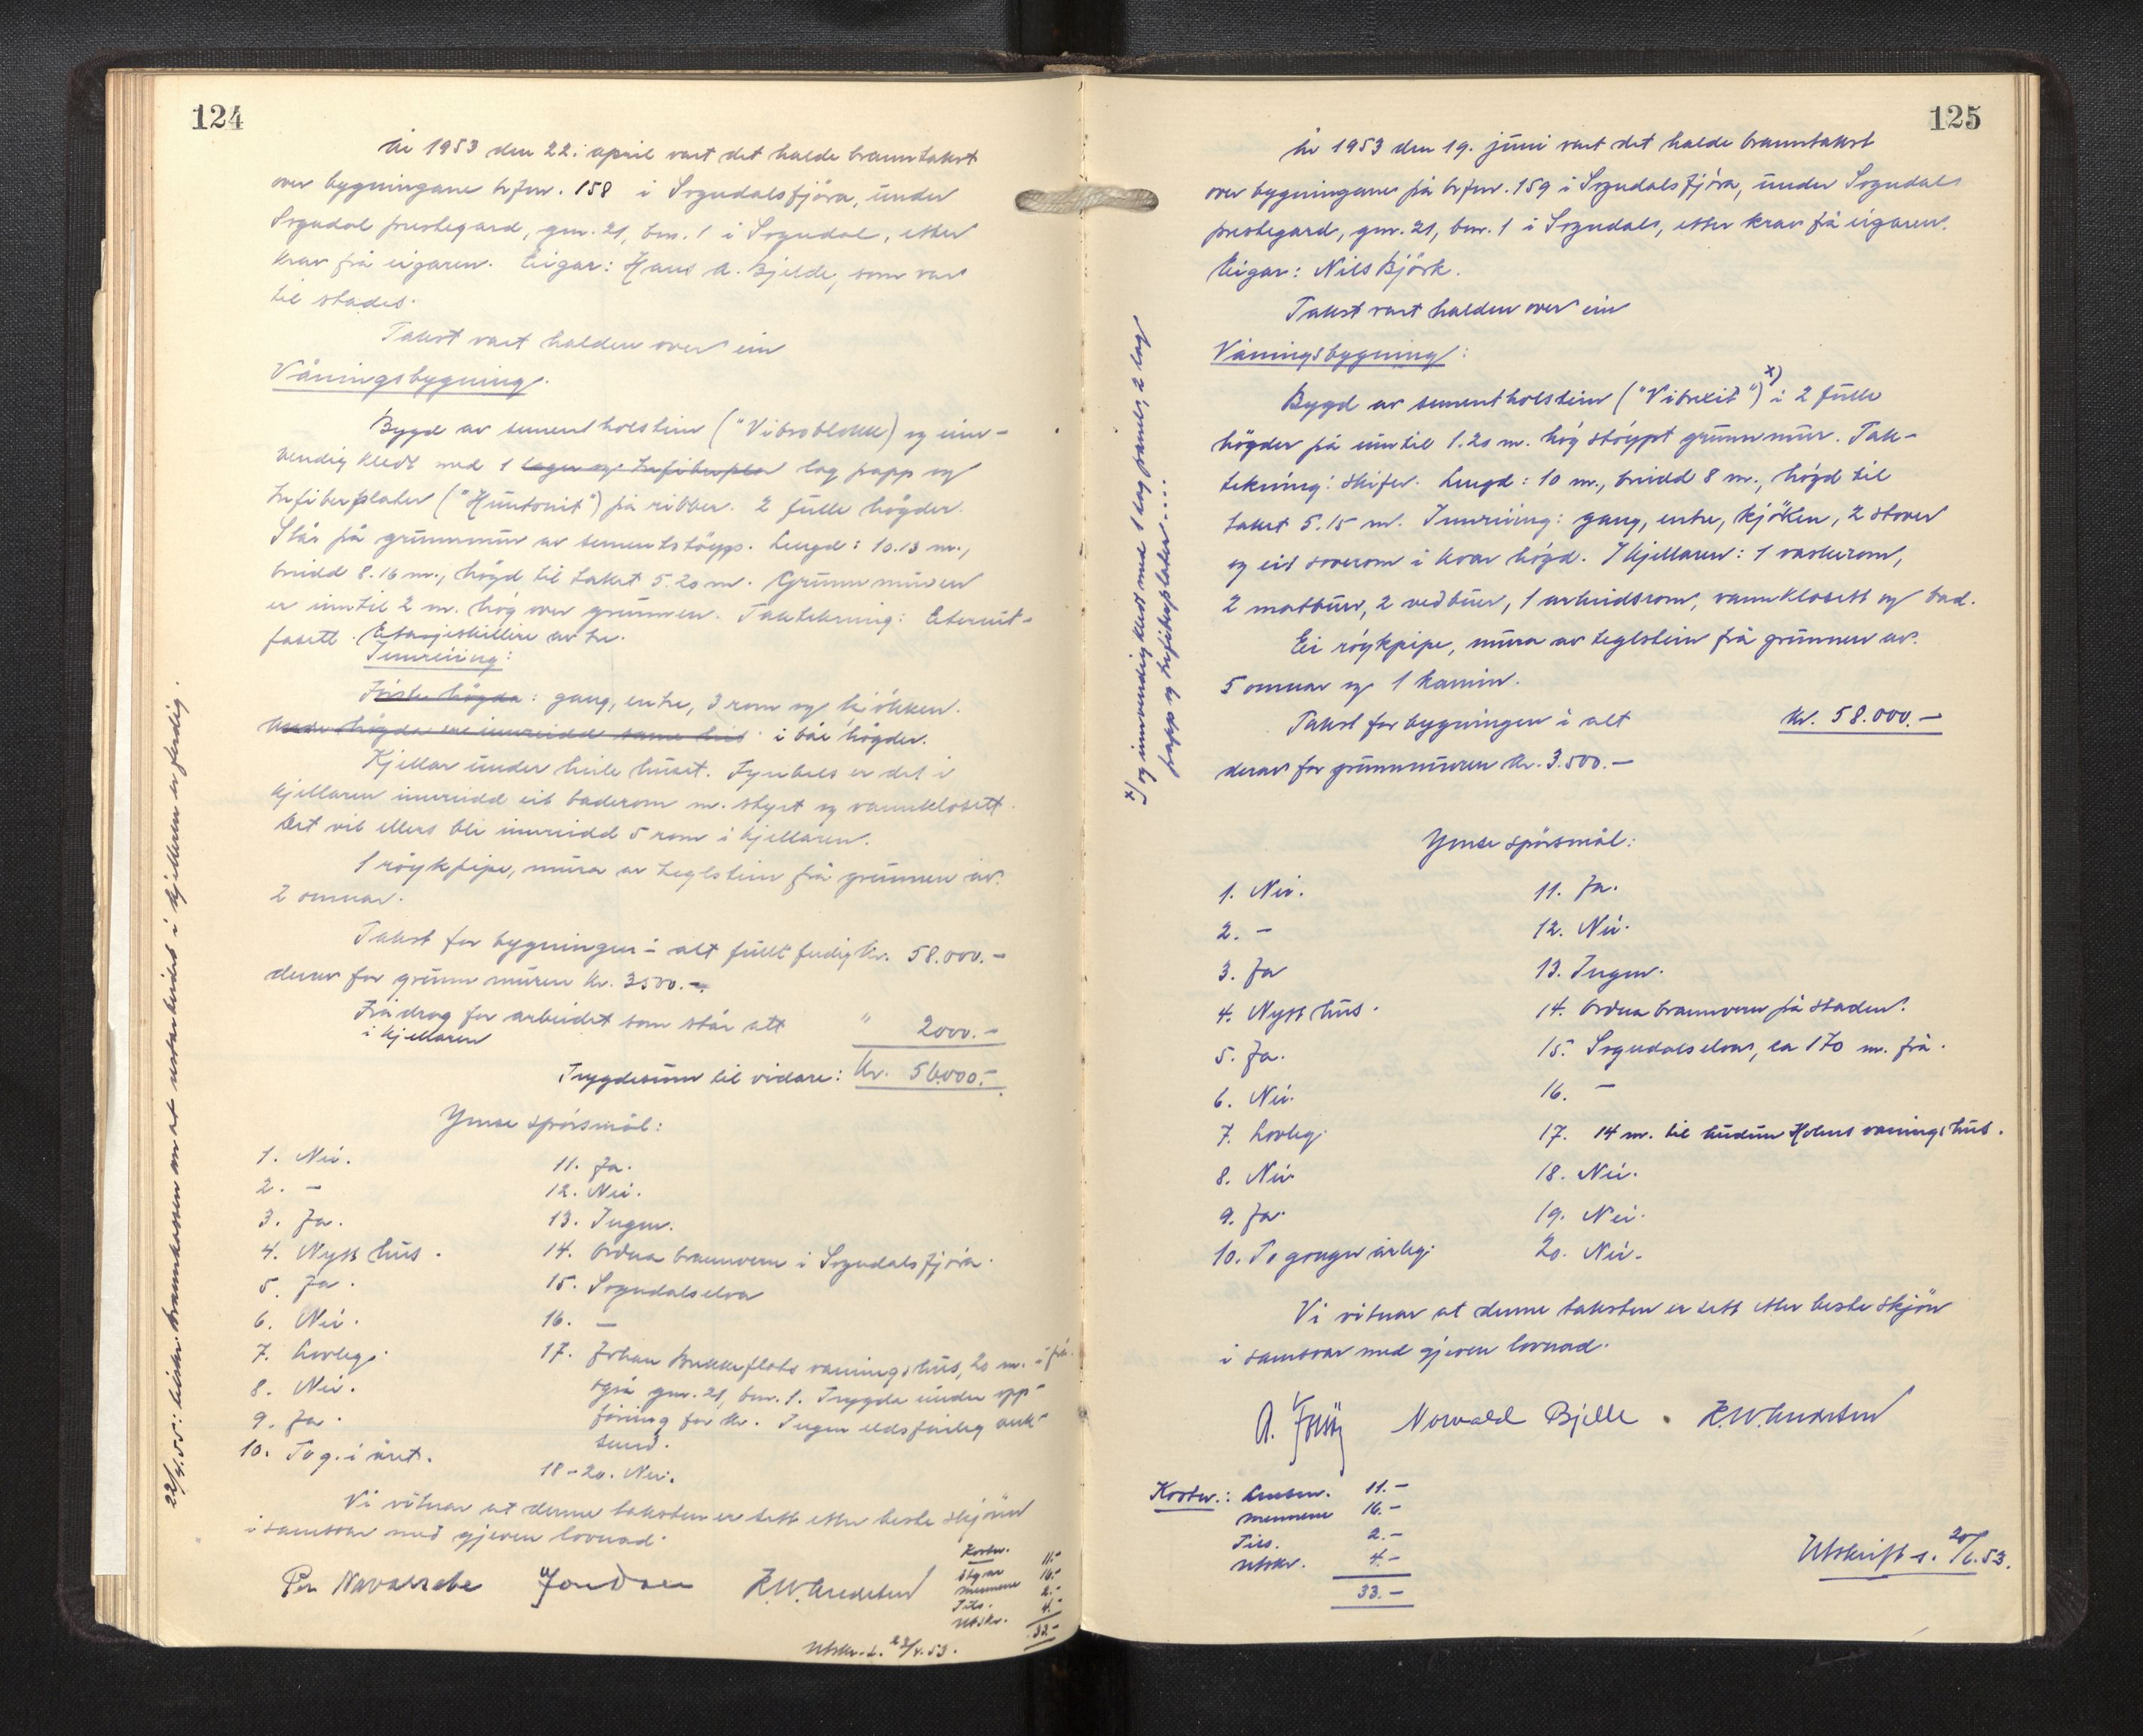 124
År 1953 den 22. april vart det halde branntakst
over bygningane br.fnr. 158 i Sogndalsfjöra, under
Sogndal prestegard, gnr. 21, bnr. 1 i Sogndal, etter
krav frå eigaren. Eigar: Hans A. Bjelde, som var
til stades.
Takst vart halden over ein
Våningsbygning.
Bygd av sementholstein ("Vibroblokk) og inn-
vendig kledt med 1 lag papp og
trefiberplater ("Huntonit") på ribber. 2 fulle högder.
Står på grunnmur av sementstöyp. Lengd: 10.13 m.,
breidd 8.16 m., högd til taket 5.20 m. Grunnmuren
er inntil 2 m. hög over grunnen. Taktekning: Eternit-
fasett. Etasjeskillire av tre.
Innreiing:
Första högda: gang, entre, 3 rom og kjökken.
i båe högder.
Kjellar under heile huset. Fyribels er det i
kjellaren innreidd eit baderom m. styrt og vannklosett.
Det vil ellers bli innreidd 5 rom i kjellaren.
1 röykpipe, mura av teglstein frå grunnen av.
2 omnar.
Takst for bygningen i alt fullt ferdig kr. 58.000.-
derav for grunnmuren kr. 3500.-
Frådrag for arbeidet som står att " 2000.-
i kjellaren
Trygdesum til vidare: Kr. 56.000.-
Ymse spörsmål:
1. Nei. 11. Ja.
2. - 12. Nei.
3. Ja. 13. Ingen.
4. Nytt hus. 14. Ordna brannvern i Sogndalsfjöra.
5. Ja. 15. Sogndalselva
6. Nei. 16. -
7. Lovleg. 17. Johan Bukkeflots våningshus, 20 m. ifrå.
8. Nei. også gnr. 21, bnr. 1. Trygda under opp-
9. Ja. föring for kr. Ingen eldsfarleg verk-
semd.
10. To g. i året. 18-20. Nei.
Vi vitnar at denne taksten er sett etter beste skjönn
i samsvar med gjeven lovnad.
Per Navarsete K.W.
Kostn.
11.-
mennene 16.-
Tils. 2.-
Utskr. 4.-
33.-
Utskr. s. 23/4.53.
22/4.55: at i kjellaren er ferdig.
125
År 1953 den 19. juni vart det halde branntakst
over bygningane på br.fnr. 159 i Sogndalsfjöra, under Sogndals
prestegard, gnr. 21, bnr. 1 i Sogndals, etter krav frå eigaren.
Eigar: Nils Björk.
Takst vart halden over ein
Våningsbygning:
Bygd av sementholstein ("Vibrexit") x) i 2 fulle
högder på inntil 1.20 m. hög stöypt grunnmur. Tak-
tekning: Skifer. Lengd: 10 m., breidd 8 m., högd til
taket 5.15 m. Innreiing: gang, entre, kjöken, 2 stover
og eit soverom i kvar högd. I kjellaren: 1 vaskerom,
2 matbuer, 2 vedbuer, 1 arbeidsrom, vannklosett og bad.
Ei röykpipe, mura av teglstein frå grunnen av.
5 omnar og 1 kamin.
Takst for bygningen i alt kr. 58.000.-
derav for grunnmuren kr. 3.500.-
x) og innvendig kledt med 1 lag panel, 2 lag
papp og trefiberplater....
Ymse spörsmål:
1. Nei. 11. Ja.
2. - 12. Nei.
3. Ja 13. Ingen.
4. Nytt hus. 14. Ordna brannvern på staden.
5. Ja. 15. Sogndalselva, ca 170 m. frå.
6. Nei. 16. -
7. Lovleg. 17. 14 m. til Holms våningshus.
8. Nei 18. Nei.
9. Ja. 19. Nei.
10. To gonger årleg. 20. Nei.
Vi vitnar at denne taksten er sett etter beste skjön
i samsvar med gjeven lovnad.
Norvald Bjelle. K.W.
Kostn.: Lensm. 11.-
mennene 16.-
Tils. 2.-
Utskr. 4.-
33.-
Utskrift s. 20/6.53.